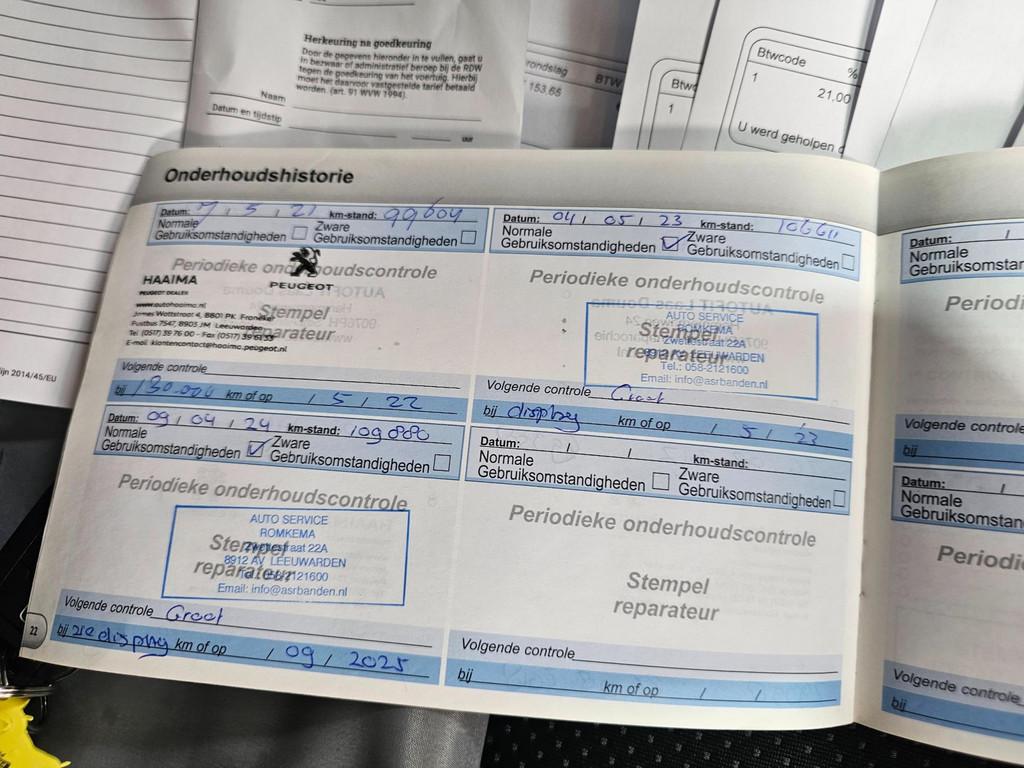 Herkeuring na goedkeuring
Door de gegevens hieronder in te vullen, gaat u
in bezwaar of administratief beroep bij de RDW
tegen de goedkeuring van het voertuig. Hierbij
moet het daarvoor vastgestelde tarief betaald
worden. (art. 91 WVW 1994).
Naam
Datum en tijdstip
uur
rondslag BTW
153.65
Btwc
1
Btwcode %
1 21,00
U werd geholpen d
ijn 2014/45/EU
Onderhoudshistorie
Datum: 7 / 5 / 21 km-stand: 99604
Normale Zware
Gebruiksomstandigheden Gebruiksomstandigheden
Periodieke onderhoudscontrole
HAAIMA PEUGEOT
PEUGEOT DEALER
www.autohaaima.nl
James Wattstraat 4, 8801 PK Franeker
Postbus 7547, 8903 JM Leeuwarden
Tel. (0517) 39 76 00 - Fax (0517) 39 61 33
E-mail: klantencontact@haaima.peugeot.nl
Stempel
reparateur
Volgende controle
bij 130.000 km of op / 5 / 22
Datum: 04 / 05 / 23 km-stand: 106611
Normale Zware
Gebruiksomstandigheden Gebruiksomstandigheden
Periodieke onderhoudscontrole
Stempel
reparateur
AUTO SERVICE
ROMKEMA
Zwettestraat 22A
8912 AV LEEUWARDEN
Tel.: 058-2121600
Email: info@asrbanden.nl
Volgende controle Groot
bij display km of op / 5 / 23
Datum: 09 / 04 / 24 km-stand: 109880
Normale Zware
Gebruiksomstandigheden Gebruiksomstandigheden
Periodieke onderhoudscontrole
Stempel
reparateur
AUTO SERVICE
ROMKEMA
Zwettestraat 22A
8912 AV LEEUWARDEN
Tel.: 058-2121600
Email: info@asrbanden.nl
Volgende controle Groot
bij zie display km of op / 09 / 2025
22
Datum: / / km-stand:
Normale Zware
Gebruiksomstandigheden Gebruiksomstandigheden
Periodieke onderhoudscontrole
Stempel
reparateur
Volgende controle
bij km of op / /
Datum: /
Normale
Gebruiksomstan
Periodi
Volgende controle
bij
Datum: /
Normale
Gebruiksomstan
Periodi
Volgende controle
bij